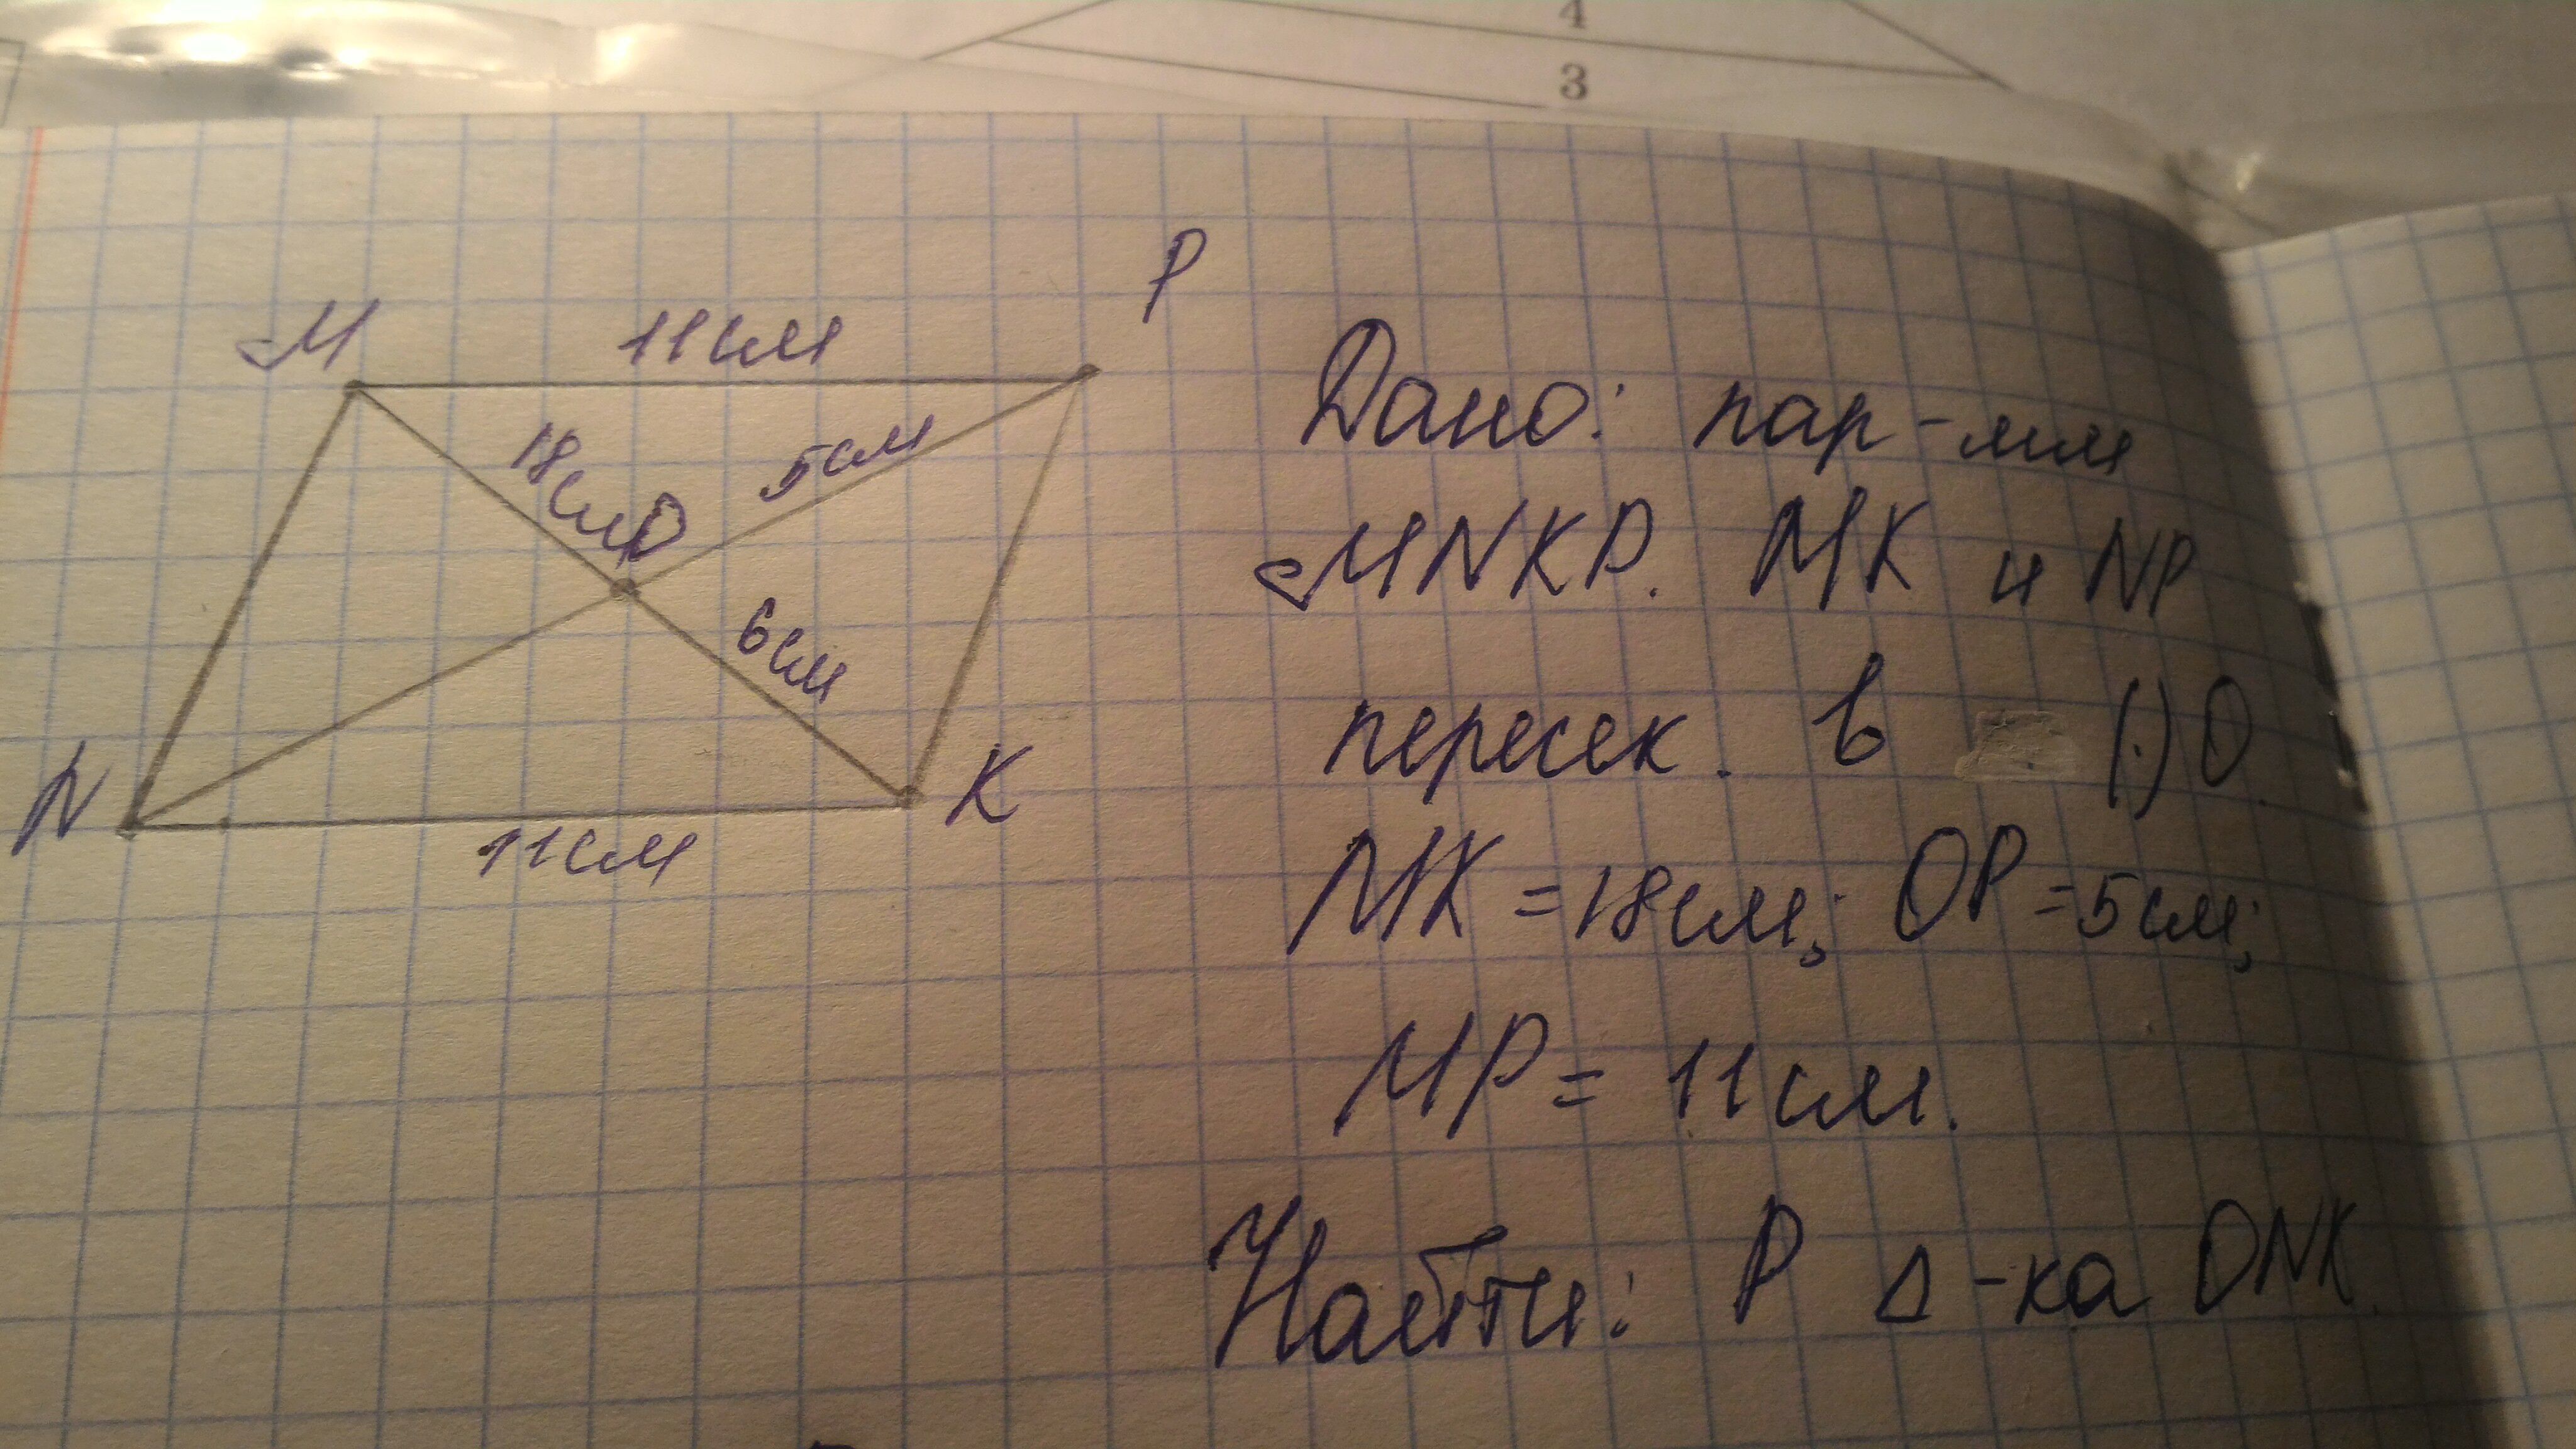 4
3
M 11см P
18см O 5см
6см
N 11см K
Дано: пар-мм
MNKP. MK и NP
пересек. в (·) O.
MK = 18см; OP = 5см;
MP = 11см.
Найти: P Δ-ка ONK.